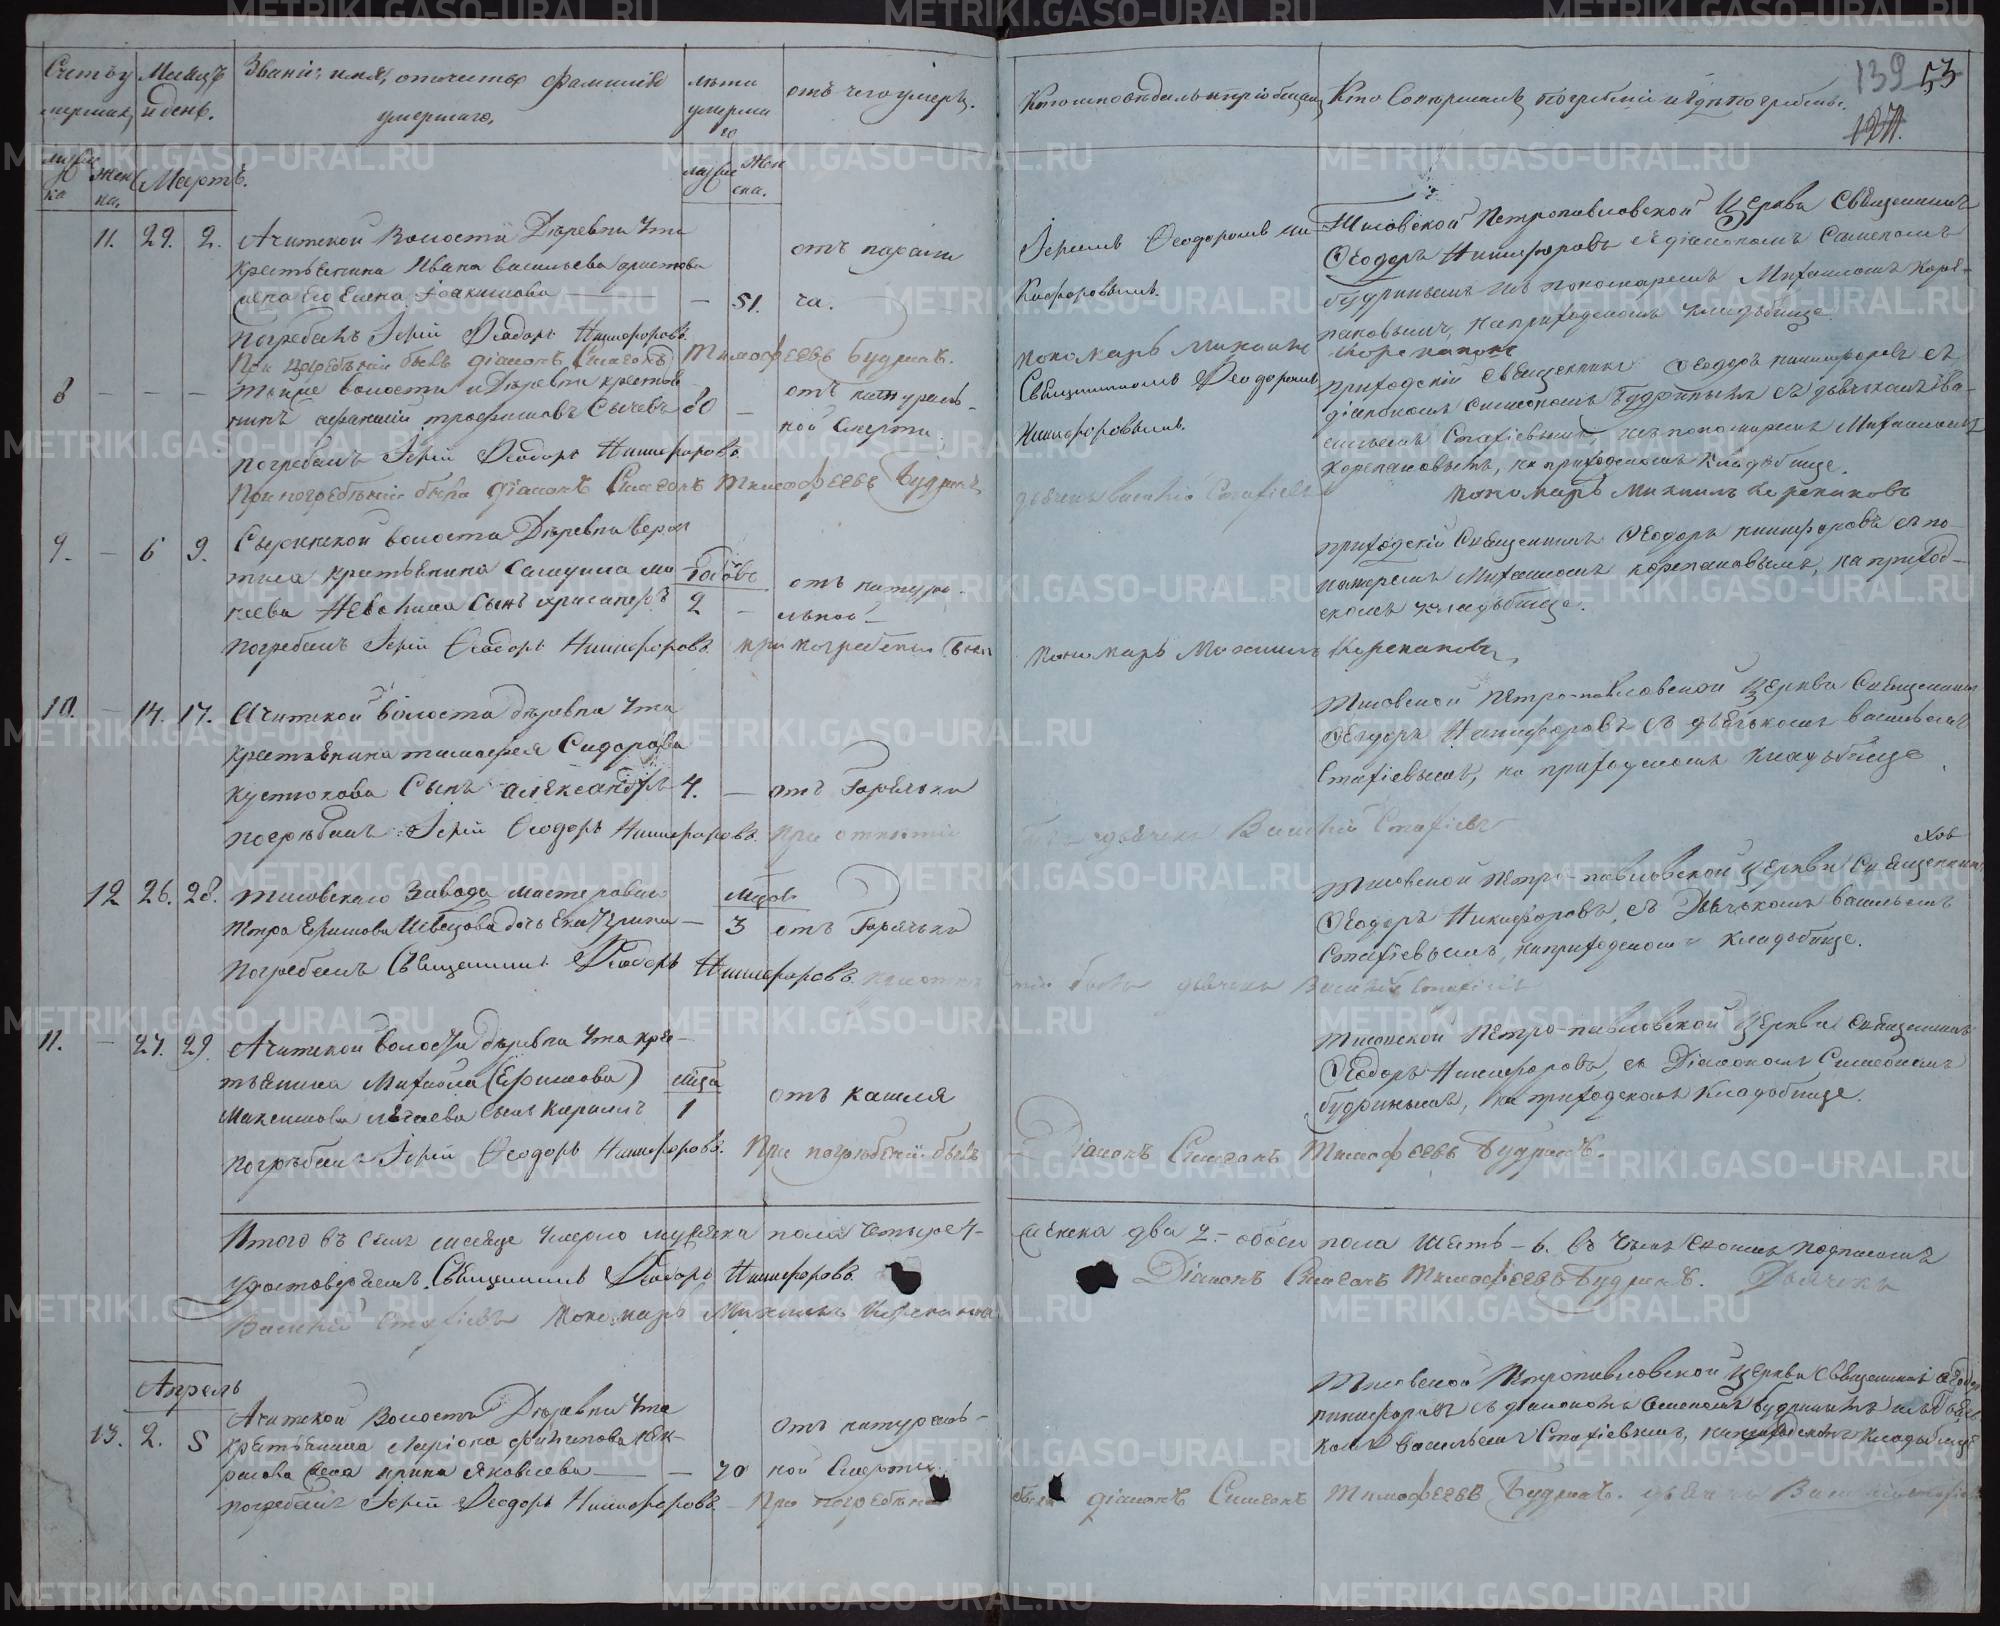 Счетъ у
мершихъ
Месяцъ
и день.
Званiе, имя, отчество и фамилiя
умершаго.
лета
умерша
го
отъ чего умеръ.
Кто исповедывалъ и прiобщалъ
Кто Совершалъ погребенiе и где погребены.
139 53
127.
муже
ска
Жен
ка.
Мартъ.
муже
Жен
ска.
11. 29. 2. Ачитской Волости Деревни Ута
крестьянина Ивана Васильева
жена его Елена Iоакимова — 51.
отъ парали
ча.
Iереемъ Феодоромъ Ни
кифоровымъ.
Тисовской Петропавловской Церкви Священникъ
Феодоръ Никифоровъ съ дiакономъ Симеономъ
Будринымъ и пономаремъ Михаиломъ Коре-
пановымъ, на приходскомъ кладбище.
погребалъ Iерей Феодоръ Никифоровъ.
При погребенiи былъ дiаконъ Симеонъ Тимофеевъ Будринъ.
пономарь Михаилъ Корепановъ
8 — — — Тойже волости и Деревни крестья
нинъ Афанасiй Трофимовъ Сычевъ 80 —
отъ натураль-
ной Смерти
Священникомъ Феодоромъ
Никифоровымъ.
приходскiй Священникъ Феодоръ Никифоровъ съ
дiакономъ Симеономъ Будринымъ съ дьячкомъ Ва-
сильемъ Стафiевымъ, и пономаремъ Михаиломъ
Корепановымъ, на приходскомъ Кладбище.
погребалъ Iерей Феодоръ Никифоровъ
При погребенiи былъ дiаконъ Симеонъ Тимофеевъ Будринъ
дьячекъ Василiй Стафiевъ
пономарь Михаилъ Корепановъ
9. — 6 9. Сыринской волости Деревни
крестьянина Самуила
сынъ
2 —
отъ натура
льной
приходскiй Священникъ Феодоръ Никифоровъ съ по-
номаремъ Михаиломъ Корепановымъ, на приход-
скомъ кладбище.
погребалъ Iерей Феодоръ Никифоровъ. при погребенiи былъ
пономарь Михаилъ Корепановъ
10. — 14. 17. Ачитской волости деревни Ута
крестьянина Тимофея Сидорова
Кустикова Сынъ Александръ 4. — отъ Горячки
Тисовской Петро-павловской Церкви Священникъ
Феодоръ Никифоровъ съ дьячькомъ Васильемъ
Стафiевымъ, на приходскомъ Кладбище
погребалъ Iерей Феодоръ Никифоровъ. при отпетiи
былъ дьячекъ Василiй Стафiевъ
12 26. 28. Тисовскаго Завода мастероваго
Петра Ефимова Швецова дочь Екатерина —
3 отъ Горячьки
Тисовской Петро-павловской Церкви Священникъ
Феодоръ Никифоровъ, съ Дьячькомъ Васильемъ
Стафiевымъ, на приходскомъ Кладбище.
погребалъ Священникъ Феодоръ Никифоровъ.
былъ дьячекъ Василiй Стафiевъ
11. — 27. 29. Ачитской Волости деревни Ута кре-
стьянина Михаила (Ефимова)
Максимова сынъ Кирилъ
1
отъ кашля
Тисовской Петро-павловской Церкви Священникъ
Феодоръ Никифоровъ, съ Дiакономъ Симеономъ
Будринымъ, на приходскомъ Кладбище.
погребалъ Iерей Феодоръ Никифоровъ. При погребенiи былъ
Дiаконъ Симеонъ Тимофеевъ Будринъ.
Итого въ семъ месяце умерло мужеска пола четыре 4-
женска два 2.- обоего пола шесть - 6. въ чемъ своимъ подписомъ
удостоверяемъ. Священникъ Феодоръ Никифоровъ.
Дiаконъ Симеонъ Тимофеевъ Будринъ. Дьячекъ
Василiй Стафiевъ Пономарь Михаилъ Корепановъ
Апрель
13. 2. 5 Ачитской Волости Деревни Ута
крестьянина Ларiона Филипова
жена Ирина Яковлева — — 70
отъ натураль-
ной Смерти.
Тисовской Петропавловской Церкви Священникъ Феодоръ
Никифоровъ съ дiакономъ Симеономъ Будринымъ и дьяч
комъ Васильемъ Стафiевымъ, на приходскомъ кладбище
погребалъ Iерей Феодоръ Никифоровъ. При погребенiи
были дiаконъ Симеонъ Тимофеевъ Будринъ. дьячекъ Василiй Стафiевъ